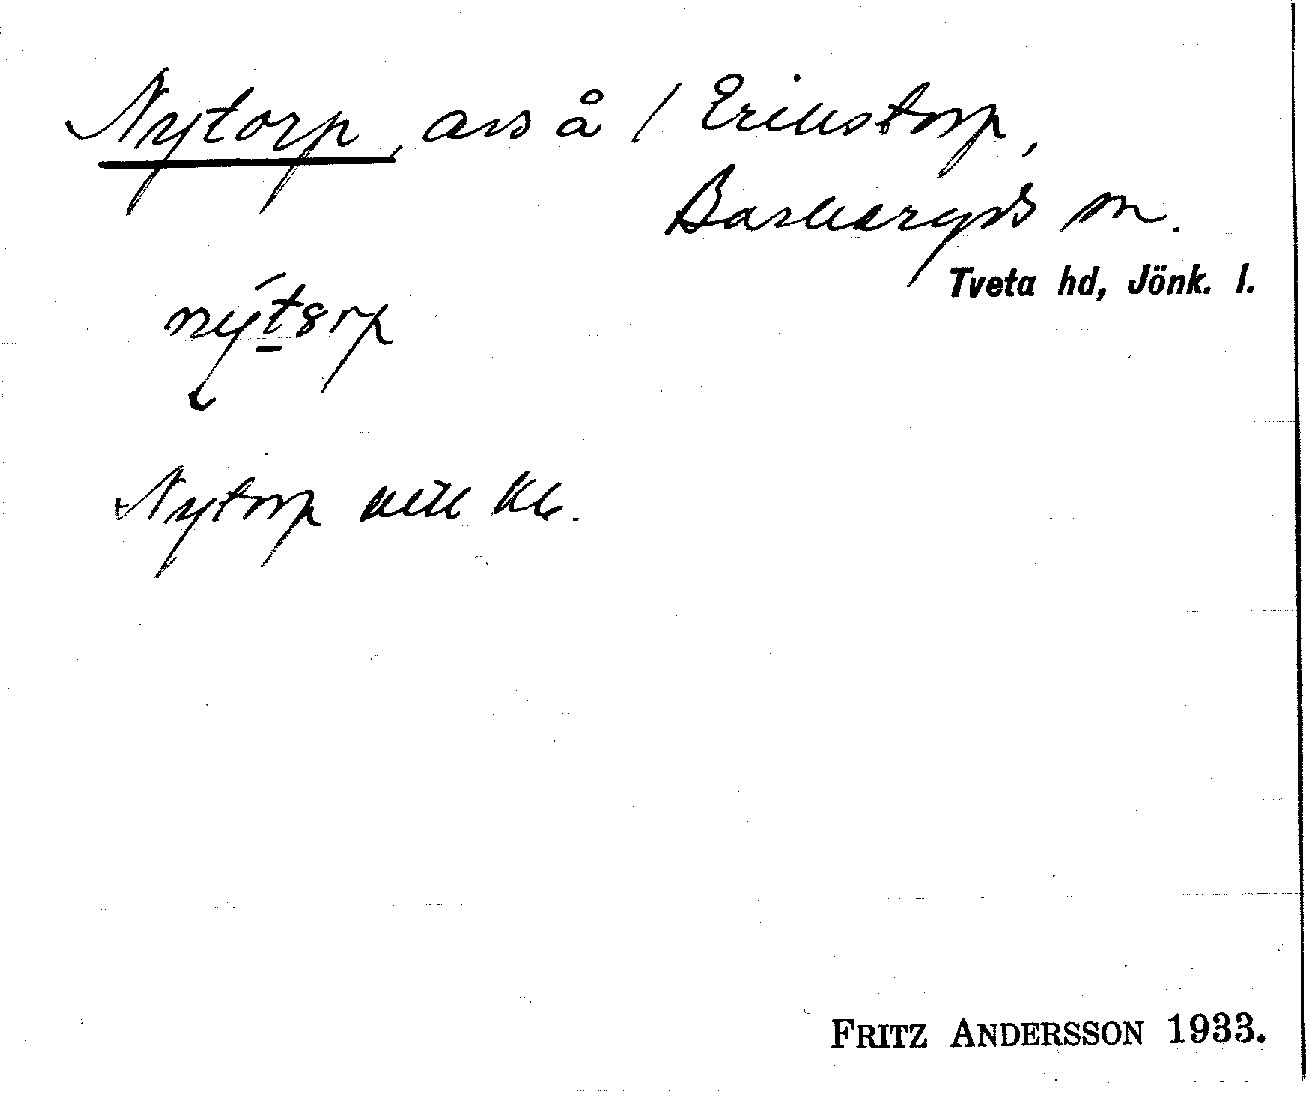 Nytorp, avs å / Erikstorp,
Barkeryds sn.
Tveta hd, Jönk. l.
nýtorp
Nytorp
FRITZ ANDERSSON 1933.